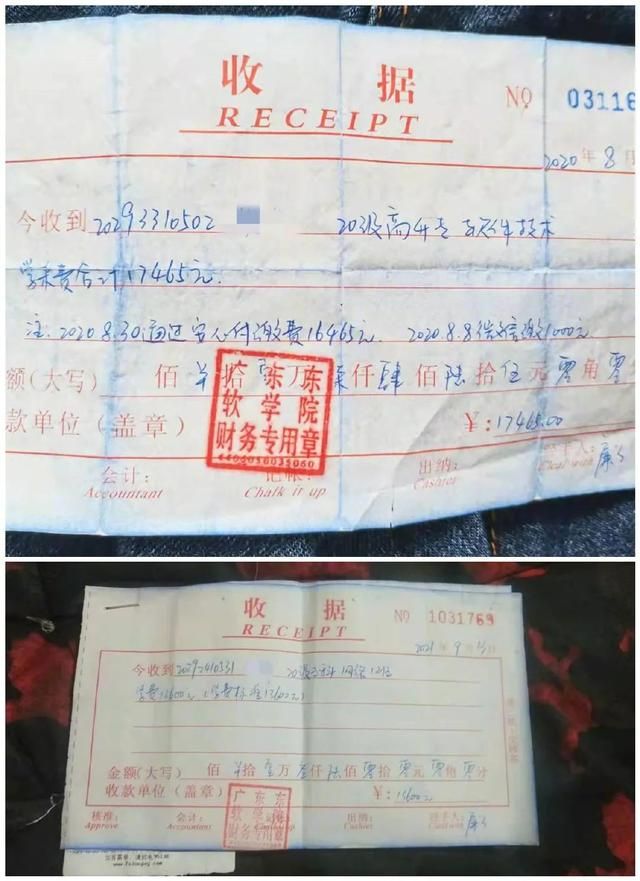 收 据
RECEIPT
№ 03116
2020 年 8 月
今收到 20293310502 20级高升专 软件技术
学杂费合计17465元
注: 2020.8.30通过 付缴费16465元 2020.8.8 微信缴1000元
额(大写) 佰 拾 壹万 柒仟肆佰陆拾伍元零角零
款单位(盖章)
¥:17465.00
广东东
软学院
财务专用章
会计: 记帐: 出纳: 经手人:
Accountant Chalk it up Cashier Clear with
收 据
RECEIPT
№ 1031769
2021 年 9 月 日
今收到 20级 科 网络
学费13600元(学费标准 )
金额(大写) 佰 拾 壹万叁仟陆佰零拾零元零角零分
收款单位(盖章)
¥:13600元
广东东
软学院
财务专用章
核准: 会计: 记帐: 出纳: 经手人:
Approve Accountant Cashier Clear with